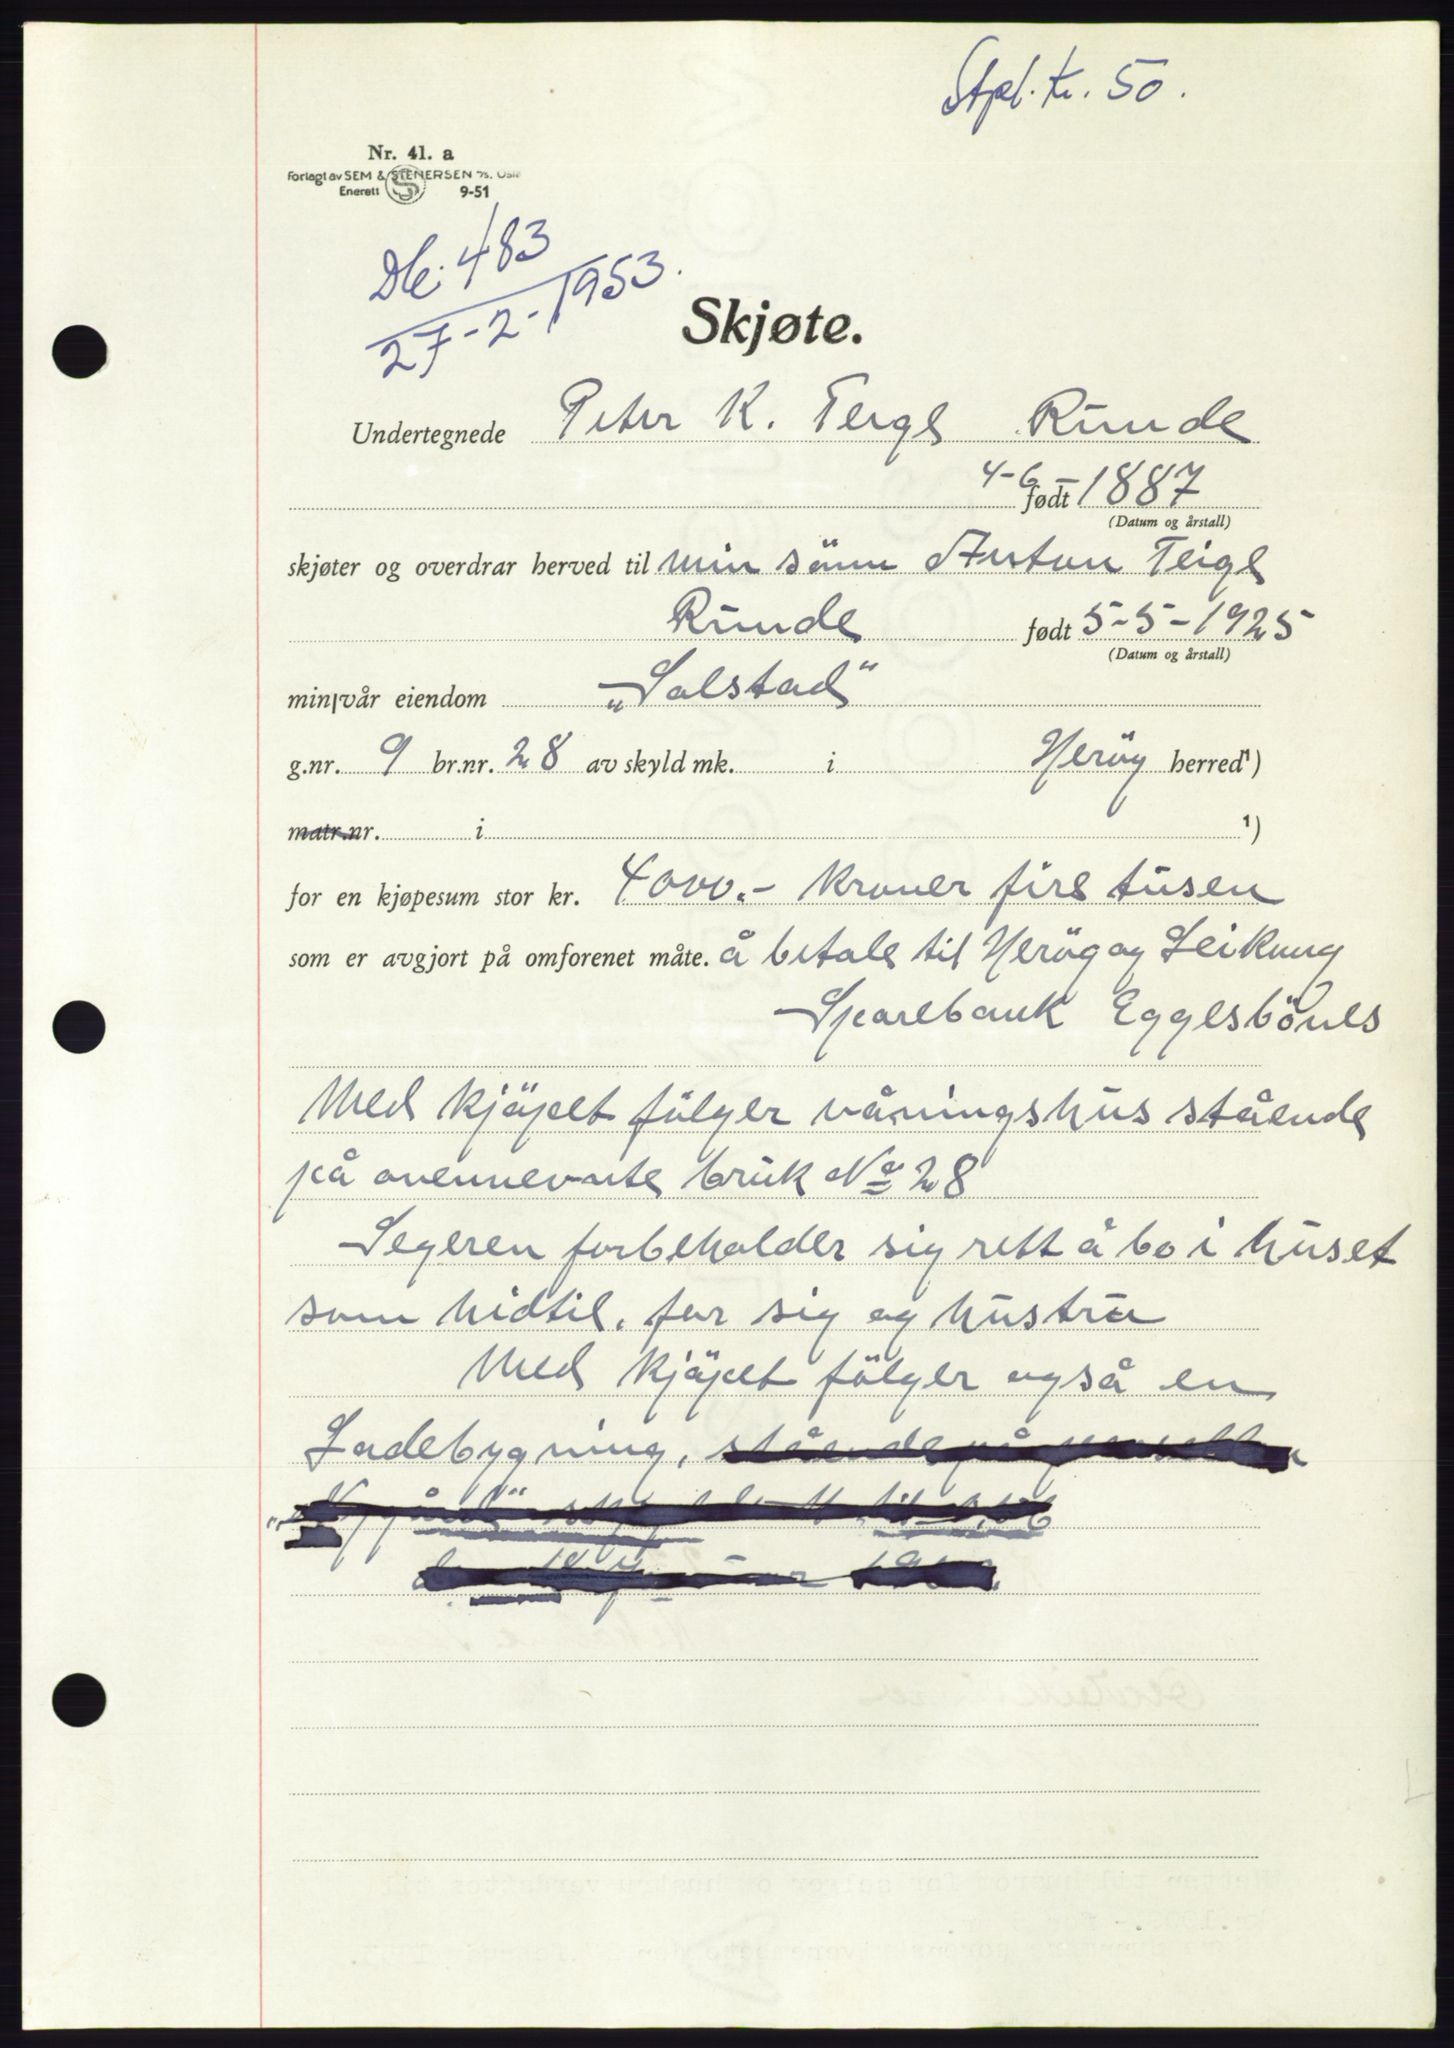 Stpl. kr. 50.
Nr. 41. a
Forlagt av SEM & STENERSEN A/S. Oslo
Enerett S 9-51
Db. 483
27-2-1953.
Skjøte.
Undertegnede Peter K. Teige Runde
4-6-1887
født
(Datum og årstall)
skjøter og overdrar herved til min sönn Anton Teige
Runde født 5-5-1925
(Datum og årstall)
min/vår eiendom „Solstad"
g.nr. 9 br.nr. 28 av skyld mk. i Heröy herred ¹)
matr.nr. i ¹)
for en kjøpesum stor kr. 4000.- kroner fire tusen
som er avgjort på omforenet måte. å betale til Heröy og Leikong
Sparebank Eggesbönes
Med kjöpet fölger våningshus stående
på ovennevnte bruk No 28
Segeren forbeholder sig rett å bo i huset
som hidtil, for sig og hustru
Med kjöpet fölger også en
Ladebygning, stående på